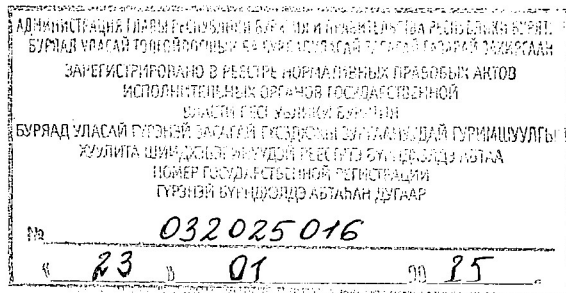 АДМИНИСТРАЦИЯ ГЛАВЫ РЕСПУБЛИКИ БУРЯТИЯ И ПРАВИТЕЛЬСТВА РЕСПУБЛИКИ БУРЯТ
БУРЯАД УЛАСАЙ ЗАСАГАЙ ГАЗАРАЙ ЗАХИРГААН
ЗАРЕГИСТРИРОВАНО В РЕЕСТРЕ НОРМАТИВНЫХ ПРАВОВЫХ АКТОВ
ИСПОЛНИТЕЛЬНЫХ ОРГАНОВ ГОСУДАРСТВЕННОЙ
ВЛАСТИ РЕСПУБЛИКИ БУРЯТИЯ
БУРЯАД УЛАСАЙ ГҮРЭНЭЙ ЗАСАГАЙ
ХУУЛИТА РЕЕСТРТЭ БҮРИДХЭЛДЭ АБТАА
НОМЕР ГОСУДАРСТВЕННОЙ РЕГИСТРАЦИИ
ГҮРЭНЭЙ БҮРИДХЭЛДЭ АБТАҺАН ДУГААР
№ 032025016
« 23 » 01 20 25 г.